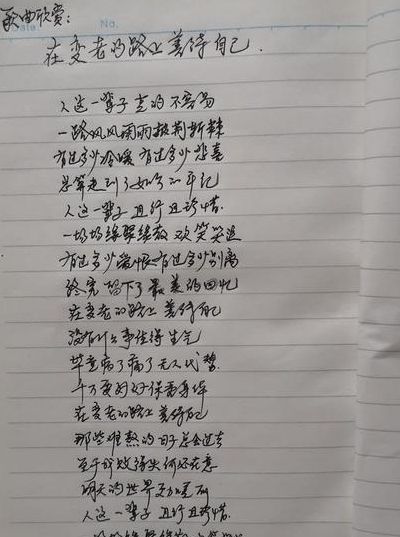 歌曲欣赏:
Date
No.
在变老的路上善待自己.
人这一辈子走的不容易
一路风风雨雨披荆斩棘
有过多少冷暖 有过多少悲喜
总算走到了如今的年纪
人这一辈子 且行且珍惜.
一场场缘聚缘散 欢笑哭泣
有过多少爱恨 有过多少别离
终究留下了最美的回忆
在变老的路上 善待自己
没有什么事值得生气
毕竟病了痛了无人代替.
千万要好好保重身体
在变老的路上 善待自己
那些难熬的日子总会过去
至于成败得失何必在意
明天的世界更加美丽
人这一辈子 且行且珍惜.